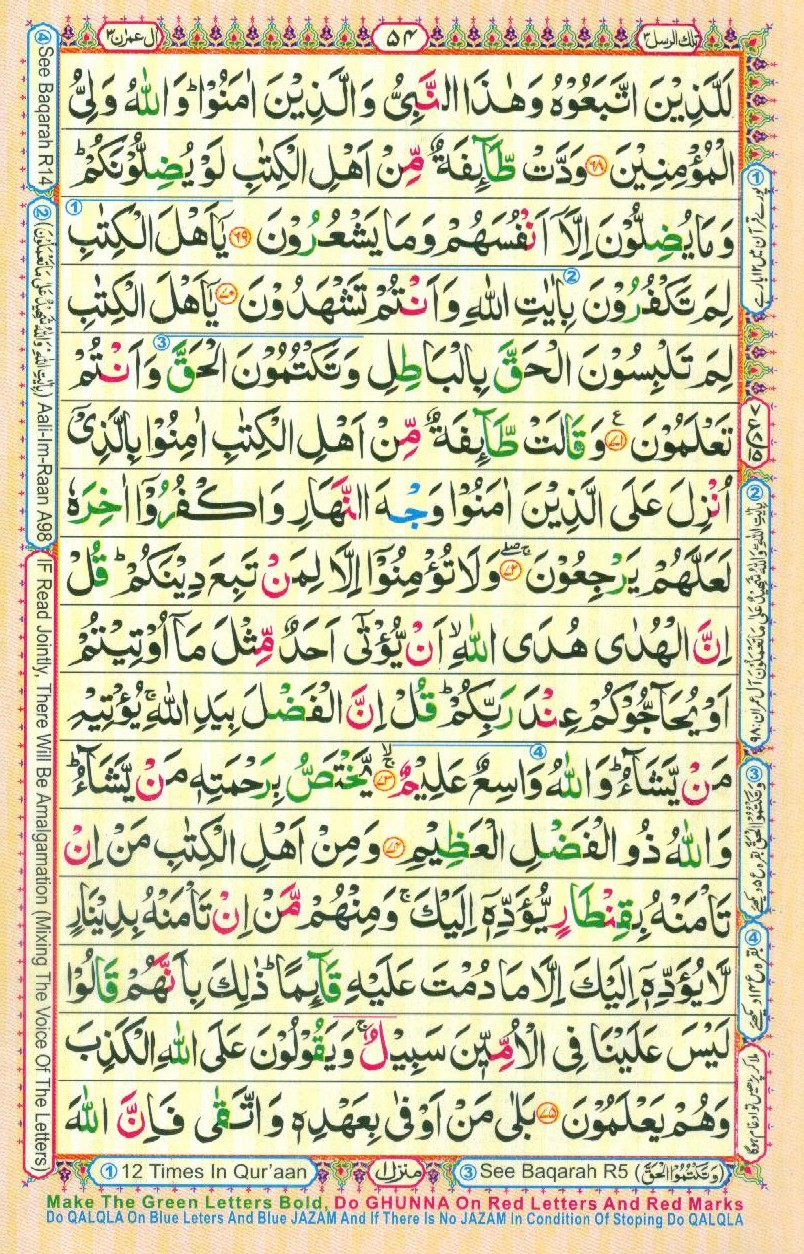 تلك الرسل ٣
٥٤
ال عمرٰن ٣
لَلَّذِيْنَ اتَّبَعُوْهُ وَهٰذَا النَّبِىُّ وَالَّذِيْنَ اٰمَنُوْا ؕ وَاللّٰهُ وَلِىُّ
الْمُؤْمِنِيْنَ ﴿۶۸﴾ وَدَّتْ طَّآىِٕفَةٌ مِّنْ اَهْلِ الْكِتٰبِ لَوْ يُضِلُّوْنَكُمْ ؕ
وَمَا يُضِلُّوْنَ اِلَّاۤ اَنْفُسَهُمْ وَمَا يَشْعُرُوْنَ ﴿۶۹﴾ يٰۤاَهْلَ الْكِتٰبِ
لِمَ تَكْفُرُوْنَ بِاٰيٰتِ اللّٰهِ وَاَنْتُمْ تَشْهَدُوْنَ ﴿۷۰﴾ يٰۤاَهْلَ الْكِتٰبِ
لِمَ تَلْبِسُوْنَ الْحَقَّ بِالْبَاطِلِ وَتَكْتُمُوْنَ الْحَقَّ وَاَنْتُمْ
تَعْلَمُوْنَ ﴿۷۱﴾ ع وَقَالَتْ طَّآىِٕفَةٌ مِّنْ اَهْلِ الْكِتٰبِ اٰمِنُوْا بِالَّذِىْۤ
اُنْزِلَ عَلَى الَّذِيْنَ اٰمَنُوْا وَجْهَ النَّهَارِ وَاكْفُرُوْۤا اٰخِرَهٗ
لَعَلَّهُمْ يَرْجِعُوْنَ ﴿۷۲﴾ وَلَا تُؤْمِنُوْۤا اِلَّا لِمَنْ تَبِعَ دِيْنَكُمْ ؕ قُلْ
اِنَّ الْهُدٰى هُدَى اللّٰهِ ۙ اَنْ يُّؤْتٰۤى اَحَدٌ مِّثْلَ مَاۤ اُوْتِيْتُمْ
اَوْ يُحَآجُّوْكُمْ عِنْدَ رَبِّكُمْ ؕ قُلْ اِنَّ الْفَضْلَ بِيَدِ اللّٰهِ ۚ يُؤْتِيْهِ
مَنْ يَّشَآءُ ؕ وَاللّٰهُ وَاسِعٌ عَلِيْمٌ ﴿۷۳﴾ يَّخْتَصُّ بِرَحْمَتِهٖ مَنْ يَّشَآءُ ؕ
وَاللّٰهُ ذُو الْفَضْلِ الْعَظِيْمِ ﴿۷۴﴾ وَمِنْ اَهْلِ الْكِتٰبِ مَنْ اِنْ
تَاْمَنْهُ بِقِنْطَارٍ يُّؤَدِّهٖۤ اِلَيْكَ ۚ وَمِنْهُمْ مَّنْ اِنْ تَاْمَنْهُ بِدِيْنَارٍ
لَّا يُؤَدِّهٖۤ اِلَيْكَ اِلَّا مَا دُمْتَ عَلَيْهِ قَآىِٕمًا ؕ ذٰلِكَ بِاَنَّهُمْ قَالُوْا
لَيْسَ عَلَيْنَا فِى الْاُمِّيّٖنَ سَبِيْلٌ ۚ وَيَقُوْلُوْنَ عَلَى اللّٰهِ الْكَذِبَ
وَهُمْ يَعْلَمُوْنَ ﴿۷۵﴾ بَلٰى مَنْ اَوْفٰى بِعَهْدِهٖ وَاتَّقٰى فَاِنَّ اللّٰهَ
① پورے قرآن میں ١٢ بار ہے
② بِاٰيٰتِ اللّٰهِ وَاللّٰهُ شَهِيْدٌ عَلٰى مَا تَعْمَلُوْنَ آل عمران: ٩٨
③ وَتَكْتُمُوا الْحَقَّ بقرہ ع ٥ دیکھئے
④ بقرہ ع ١٤ دیکھئے
ملا کر پڑھیں تو ادغام ہوگا
④ See Baqarah R14
② (بِاٰيٰتِ اللّٰهِ وَاللّٰهُ شَهِيْدٌ عَلٰى مَا تَعْمَلُوْنَ) Aali-Im-Raan A98
IF Read Jointly, There Will Be Amalgamation (Mixing The Voice Of The Letters)
① 12 Times In Qur'aan
منزل ١
③ See Baqarah R5 (وَتَكْتُمُوا الْحَقَّ)
Make The Green Letters Bold, Do GHUNNA On Red Letters And Red Marks
Do QALQLA On Blue Leters And Blue JAZAM And If There Is No JAZAM In Condition Of Stoping Do QALQLA